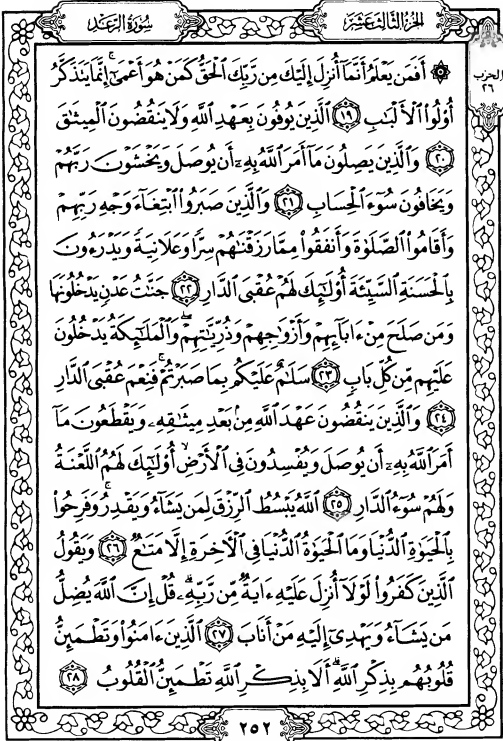 الجزء الثالث عشر
سورة الرعد
الحزب
٢٦
۞ أَفَمَن يَعْلَمُ أَنَّمَآ أُنزِلَ إِلَيْكَ مِن رَّبِّكَ ٱلْحَقُّ كَمَنْ هُوَ أَعْمَىٰٓ ۚ إِنَّمَا يَتَذَكَّرُ
أُو۟لُوا۟ ٱلْأَلْبَٰبِ ١٩ ٱلَّذِينَ يُوفُونَ بِعَهْدِ ٱللَّهِ وَلَا يَنقُضُونَ ٱلْمِيثَٰقَ
٢٠ وَٱلَّذِينَ يَصِلُونَ مَآ أَمَرَ ٱللَّهُ بِهِۦٓ أَن يُوصَلَ وَيَخْشَوْنَ رَبَّهُمْ
وَيَخَافُونَ سُوٓءَ ٱلْحِسَابِ ٢١ وَٱلَّذِينَ صَبَرُوا۟ ٱبْتِغَآءَ وَجْهِ رَبِّهِمْ
وَأَقَامُوا۟ ٱلصَّلَوٰةَ وَأَنفَقُوا۟ مِمَّا رَزَقْنَٰهُمْ سِرًّا وَعَلَانِيَةً وَيَدْرَءُونَ
بِٱلْحَسَنَةِ ٱلسَّيِّئَةَ أُو۟لَٰٓئِكَ لَهُمْ عُقْبَى ٱلدَّارِ ٢٢ جَنَّٰتُ عَدْنٍ يَدْخُلُونَهَا
وَمَن صَلَحَ مِنْ ءَابَآئِهِمْ وَأَزْوَٰجِهِمْ وَذُرِّيَّٰتِهِمْ ۖ وَٱلْمَلَٰٓئِكَةُ يَدْخُلُونَ
عَلَيْهِم مِّن كُلِّ بَابٍ ٢٣ سَلَٰمٌ عَلَيْكُم بِمَا صَبَرْتُمْ ۚ فَنِعْمَ عُقْبَى ٱلدَّارِ
٢٤ وَٱلَّذِينَ يَنقُضُونَ عَهْدَ ٱللَّهِ مِنۢ بَعْدِ مِيثَٰقِهِۦ وَيَقْطَعُونَ مَآ
أَمَرَ ٱللَّهُ بِهِۦٓ أَن يُوصَلَ وَيُفْسِدُونَ فِى ٱلْأَرْضِ ۙ أُو۟لَٰٓئِكَ لَهُمُ ٱللَّعْنَةُ
وَلَهُمْ سُوٓءُ ٱلدَّارِ ٢٥ ٱللَّهُ يَبْسُطُ ٱلرِّزْقَ لِمَن يَشَآءُ وَيَقْدِرُ ۚ وَفَرِحُوا۟
بِٱلْحَيَوٰةِ ٱلدُّنْيَا وَمَا ٱلْحَيَوٰةُ ٱلدُّنْيَا فِى ٱلْءَاخِرَةِ إِلَّا مَتَٰعٌ ٢٦ وَيَقُولُ
ٱلَّذِينَ كَفَرُوا۟ لَوْلَآ أُنزِلَ عَلَيْهِ ءَايَةٌ مِّن رَّبِّهِۦ ۗ قُلْ إِنَّ ٱللَّهَ يُضِلُّ
مَن يَشَآءُ وَيَهْدِىٓ إِلَيْهِ مَنْ أَنَابَ ٢٧ ٱلَّذِينَ ءَامَنُوا۟ وَتَطْمَئِنُّ
قُلُوبُهُم بِذِكْرِ ٱللَّهِ ۗ أَلَا بِذِكْرِ ٱللَّهِ تَطْمَئِنُّ ٱلْقُلُوبُ ٢٨
٢٥٢